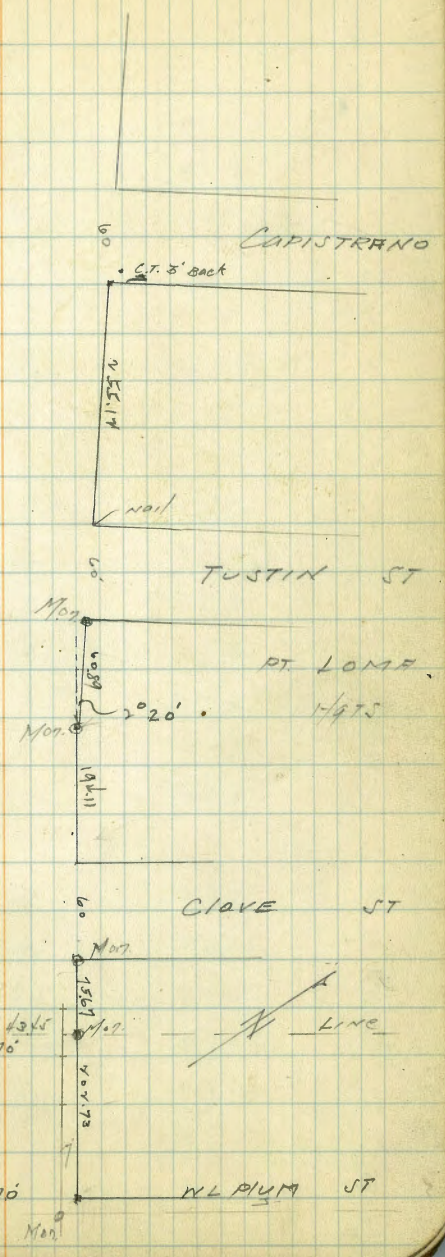 CAPISTRANO
60
C.T. 3' Back
255.17
Nail
60
TUSTIN ST
Mon.
PT. LOMA
60.89
HGTS
2° 20'
Mon.
194.11
60
CLOVE ST
Mon.
75.67
43.45
Mon.
LINE
WL PLUM ST
Mon.